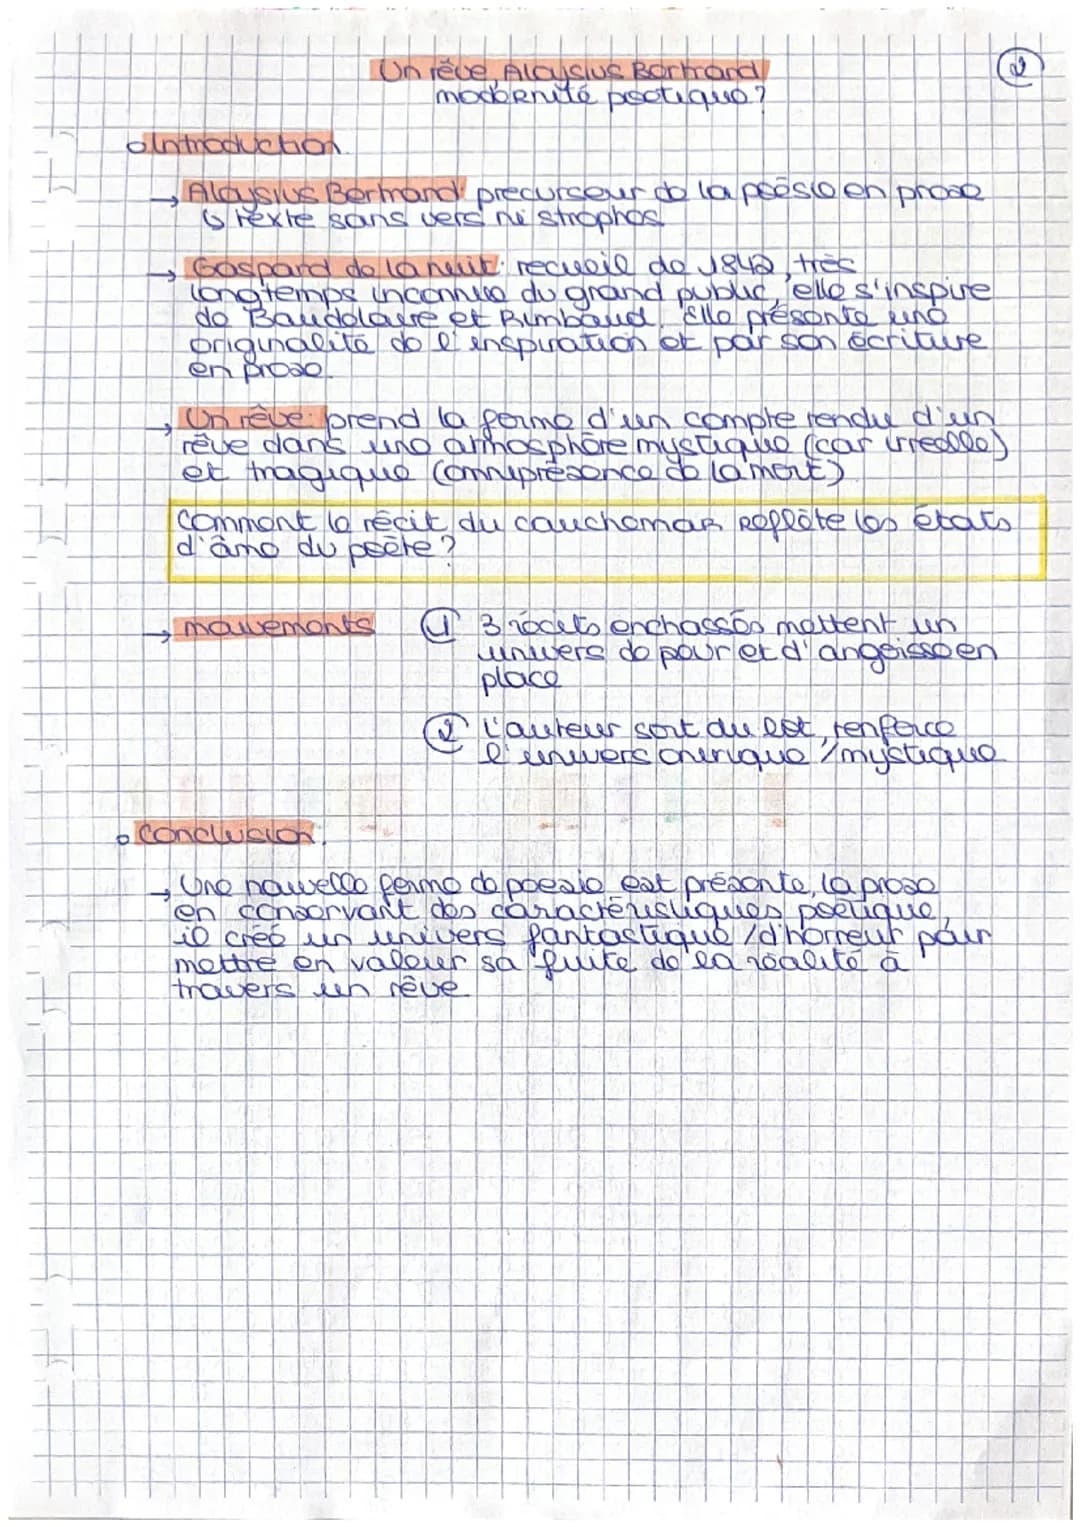 Un rêve, Aloysius Bertrand
②
modernité poétique ?
Introduction
→ Aloysius Bertrand: precurseur de la poésie en prose
↳ texte sans vers ni strophes
→ Gaspard de la nuit: recueil de 1842, très
longtemps inconnue du grand public, elle s'inspire
de Baudelaire et Rimbaud. Elle présente une
originalité de l'inspiration et par son écriture
en prose.
→ Un rêve: prend la forme d'un compte rendu d'un
rêve dans une atmosphère mystique (car irréelle)
et tragique (omniprésence de la mort)
Comment le récit du cauchemar reflète les états
d'âme du poète ?
→ mouvements ① 3 récits enchassés mettent un
univers de peur et d'angoisse en
place
② L'auteur sort du lot, renforce
l'univers onirique / mystique
Conclusion:
→ Une nouvelle forme de poesie est présente, la prose
en conservant des caractéristiques poétique,
il créé un univers fantastique / d'horreur pour
mettre en valeur sa fuite de la réalité à
travers un rêve